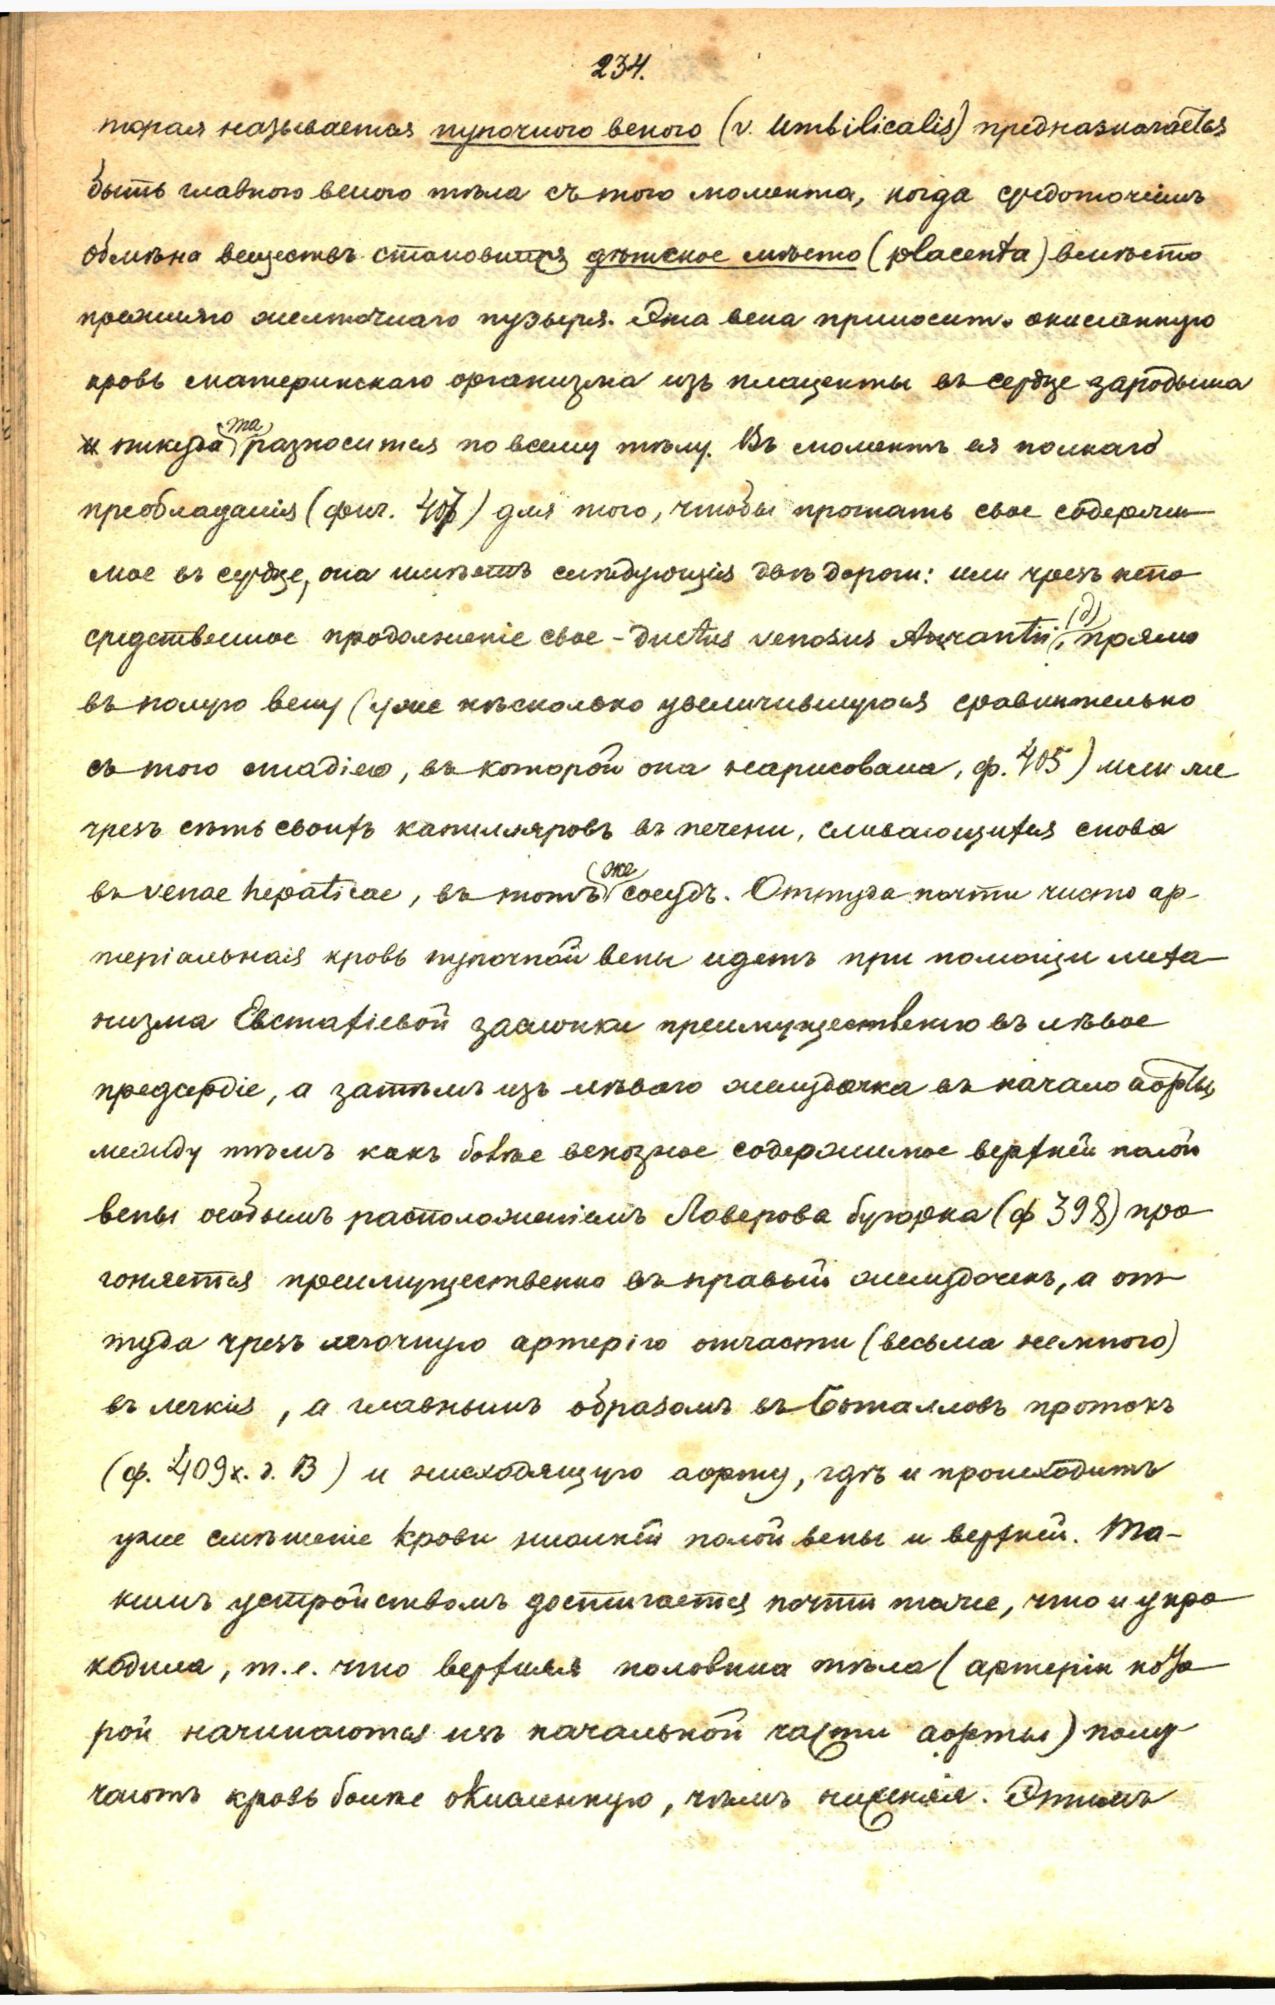 234.
торая называется пупочною веною (v. Umbilicalis) предназначается
быть главною веною тѣла съ того момента, когда средоточіемъ
обмѣна веществъ становится дѣтское мѣсто (placenta) вмѣсто
прежняго желточнаго пузыря. Эта вена приноситъ окисленную
кровь материнскаго организма изъ плаценты въ сердце зародыша
и оттуда та разносится по всему тѣлу. Въ моментъ ея полнаго
преобладанія (фиг. 407) для того, чтобы прогнать свое содержи-
мое въ сердце, она имѣетъ слѣдующія двѣ дороги: или чрезъ непо
средственное продолженіе свое - ductus venosus Aurantii (d), прямо
въ полую вену (уже нѣсколько увеличившуюся сравнительно
съ тою стадіею, въ которой она нарисована, ф. 405) или же
чрезъ сѣть своихъ капилляровъ въ печени, сливающихся снова
въ venae hepaticae, въ тотъ же сосудъ. Оттуда почти чисто ар-
теріальная кровь пупочной вены идетъ при помощи меха-
низма Евстахіевой заслонки преимущественно въ лѣвое
предсердіе, а затѣмъ изъ лѣваго желудочка въ начало аорты,
между тѣмъ какъ болѣе венозное содержимое верхней полой
вены особымъ расположеніемъ Ловерова бугорка (ф 398) про
гоняется преимущественно въ правый желудочекъ, а от-
туда чрезъ легочную артерію отчасти (весьма немного)
въ легкія, а главнымъ образомъ въ Боталловъ протокъ
(ф. 409 х. d. B) и нисходящую аорту, гдѣ и происходитъ
уже смѣшеніе крови нижней полой вены и верхней. Та-
кимъ устройствомъ достигается почти тоже, что и у кро
кодила, т. е. что верхняя половина тѣла (артеріи кото
рой начинаются изъ начальной части аорты) полу-
чаютъ кровь болѣе окисленную, чѣмъ нижняя. Этимъ